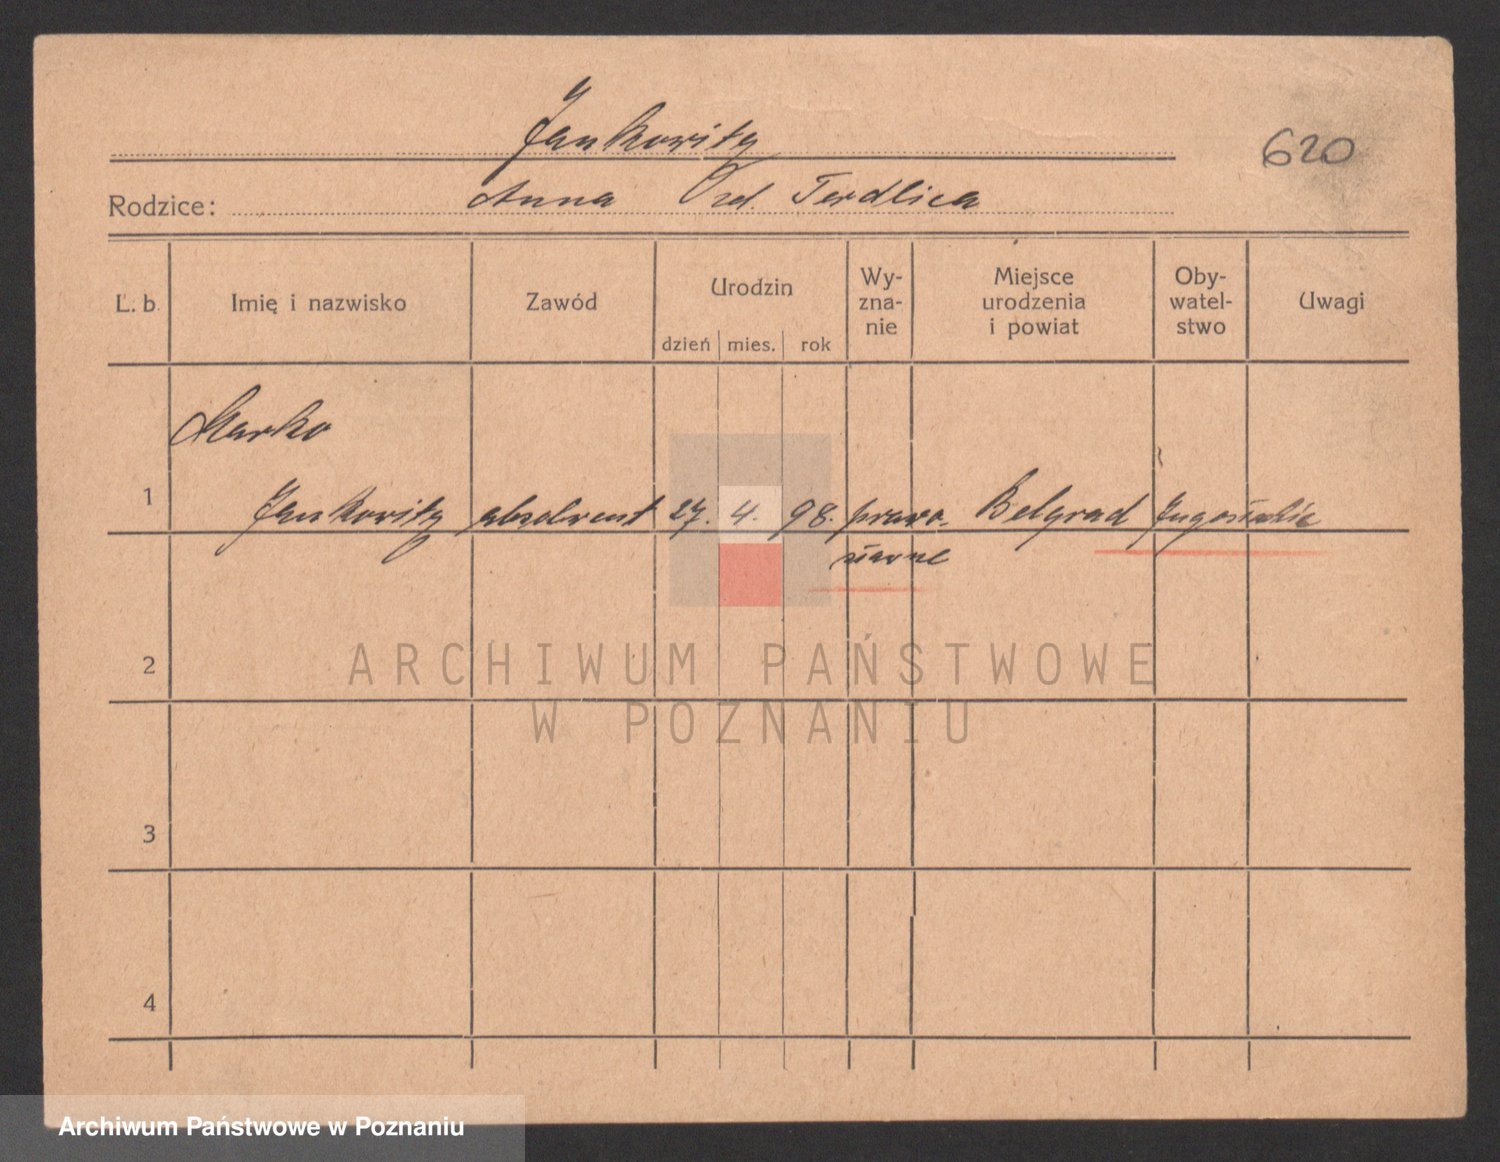 Jankowitz
620
Rodzice: Anna zd. Terdlica
L. b. Imię i nazwisko Zawód Urodzin dzień mies. rok Wy-zna-nie Miejsce urodzenia i powiat Oby-watel-stwo Uwagi
Marko
1 Jankowitz absolvent 27. 4. 98. prawo- Belgrad Jugosławia
sławne
2
3
4
ARCHIWUM PAŃSTWOWE
W POZNANIU
Archiwum Państwowe w Poznaniu